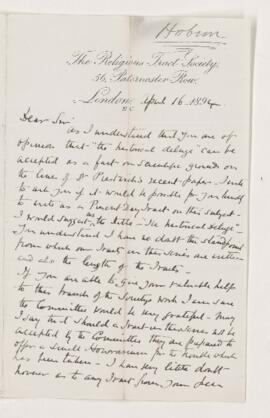 Hobson
The Religious Tract Society,
56, Paternoster Row,
London, April 16. 1894
E.C.
Dear Sir
as I understand that you are of
opinion that "the historical deluge" can be
accepted as a fact on scientific grounds on
the lines of Dr Prestwich's recent paper. I write
to ask you if it would be possible for you kindly
to write us a Present Day Tract on this subject.
I would suggest as the title "The historical deluge".
You understand I have no doubt the standpoint
from which our Tracts in this series are written
and also the length of the Tracts.
If you are able to give your valuable help
to this branch of the Society's work I am sure
the Committee would be very grateful. May
I say that should a Tract in this series be
accepted by the Committee they are prepared to
offer a small Honorarium for the trouble which
has been taken. I have very little doubt
however as to any Tract from your pen